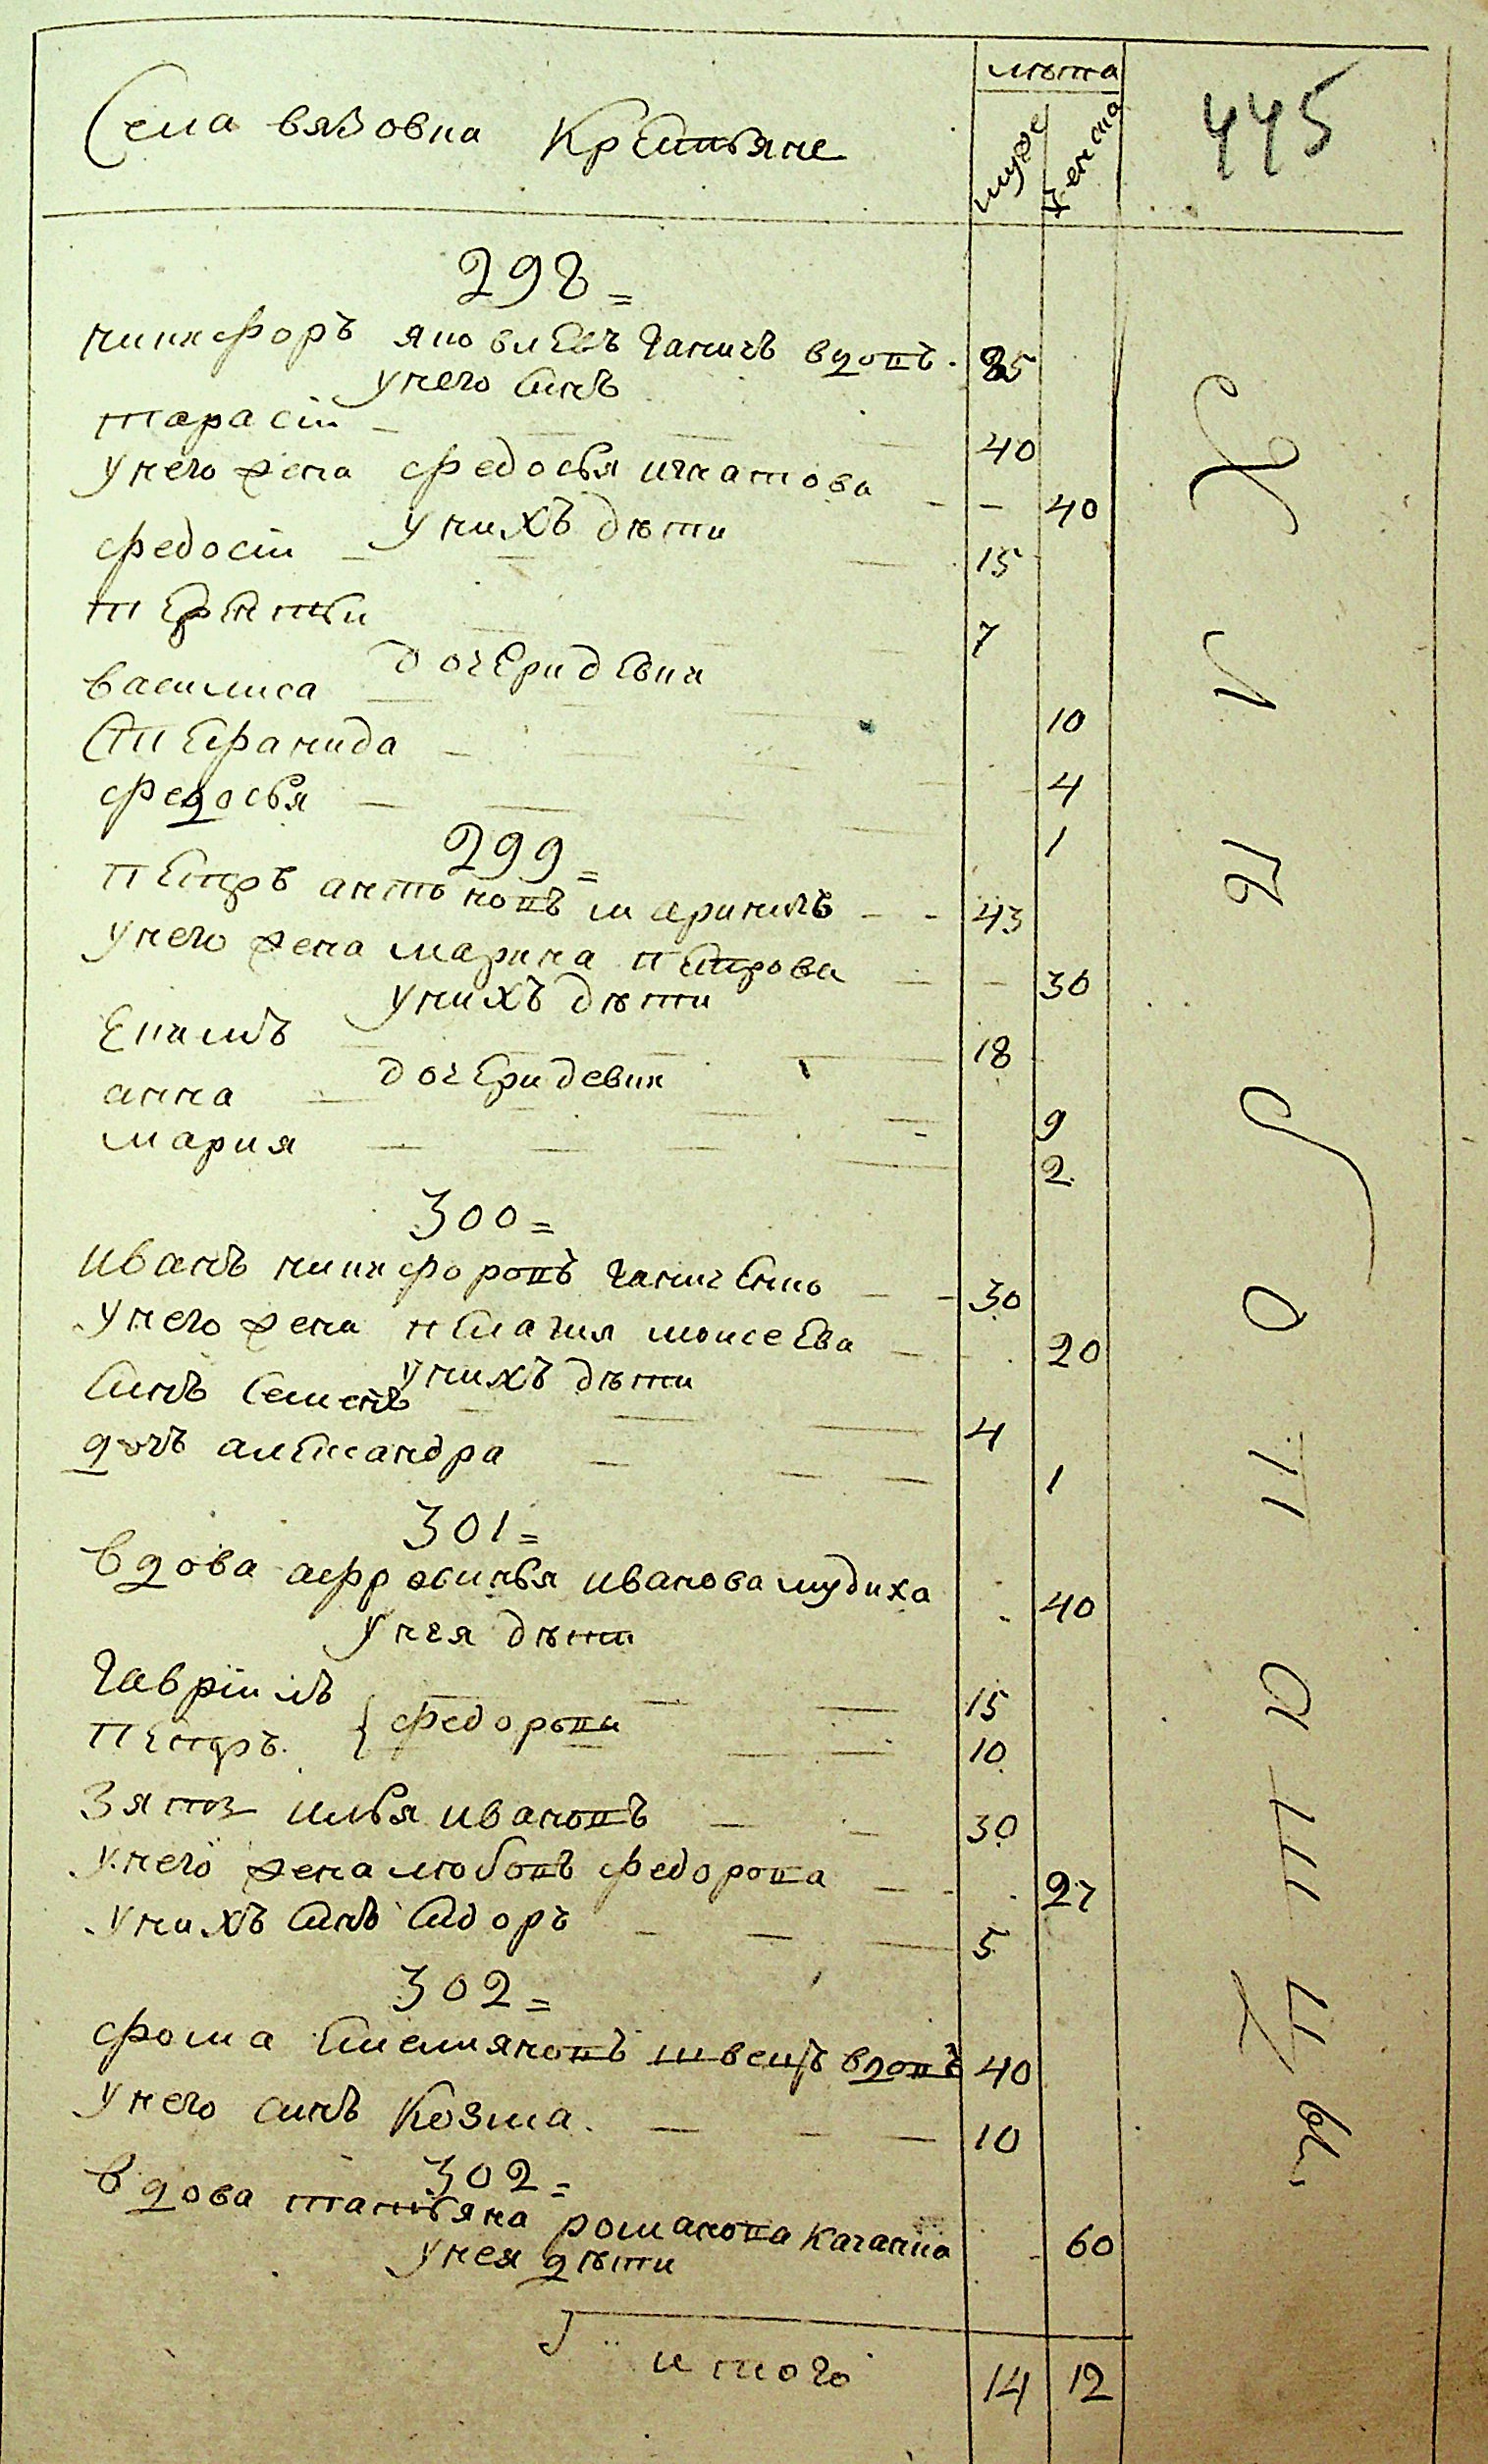 лѣта
Села вязовка Крестьяне
муже
женска
445
298=
никифоръ яковлевъ ганичъ вдовъ. 85
у него сынъ
тарасiи 40
у него жена федосья игнатова 40
у нихъ дѣти
федосiи 15
терентьи 7
дочери девки
василиса 10
степанида 4
федосья 1
299=
петръ антоновъ 43
у него жена марина петрова 30
у нихъ дѣти
екимъ 18
дочери девки
анна 9
мария 2
300=
иванъ никифоровъ ганиченко 30
у него жена пелагия моисеева 20
у нихъ дѣти
сынъ семенъ 4
дочъ александра 1
301=
вдова афросинья иванова мудиха 40
у нея дѣти
гаврiилъ 15
петръ. { федоровы 10
зять илья ивановъ 30
у него жена любовъ федорова 27
у нихъ сынъ сидоръ 5
302=
фома емельяновъ швецъ вдовъ 40
у него сынъ Козма. 10
302=
вдова татьяна романова 60
у нея дѣти
итого 14 12